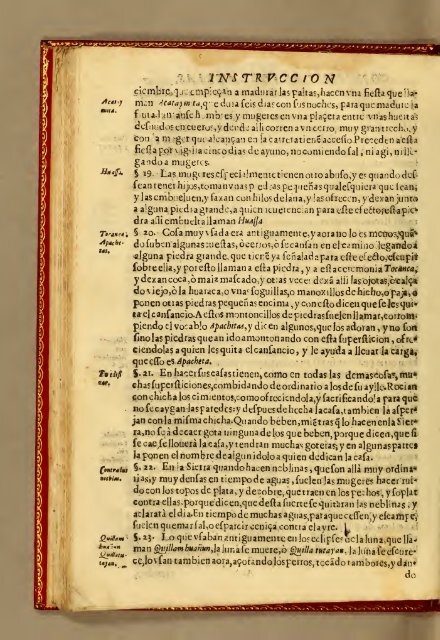 INSTRVCCION
ciembre, que empieçan a madurar las paltas, hazen vna fiesta que lla-
Acatay mita.
man Acataymita, que dura seis dias con sus noches, para que madure la
fruta. Iuntanse hombres y mugeres en vna plaçeta entre vnas huertas
desnudos en cueros, y dende alli corren a vn cerro, muy gran trecho, y
con la muger que alcançan en la carrera tienē accesso. Preceden a esta
fiesta por vigilia cinco dias de ayuno, no comiendo sal, ni agi, ni lle-
gando a mugeres.
Huassa.
§. 19. Las mugeres especialmente tienen otro abuso, y es quando des-
sean tener hijos, toman vnas piedras pequeñas qualesquiera que sean,
y las embueluen, y faxan con hilos de lana, y las ofrecen, y dexan junto
a alguna piedra grande, a quien reuerencian para este efecto: esta pie-
dra assi embuelta llaman Huassa
Tocanca, Apachitas.
§. 20. Cosa muy vsada era antiguamente, y aora no lo es menos, quā
do suben algunas cuestas, ò cerros, ò se cansan en el camino llegando a
alguna piedra grande, que tienē ya señalada para este efecto, escupir
sobre ella, y por esto llaman a esta piedra, y a esta ceremonia Tocanca;
y dexan coca, ò maiz mascado, y otras vezes dexā alli las ojotas, ò calça
do viejo, ò la huaraca, o vnas soguillas, o manoxillos de hicho, o paja, o
ponen otras piedras pequeñas encima, y con esto dicen que se les qui-
ta el cansancio. A estos montoncillos de piedras suelen llamar, corrom-
piendo el vocablo Apachitas, y dicen algunos, que los adoran, y no son
sino las piedras que an ido amontonando con esta supersticion, ofre-
ciendolas a quien les quita el cansancio, y le ayuda a lleuar la carga,
que esso es Apacheta.
§. 21. En hacer sus casas tienen, como en todas las demas cosas, mu-
chas supersticiones, combidando de ordinario a los de su ayllo. Rocian
con chicha los cimientos, como ofreciendola, y sacrificandola para que
no se caygan las paredes: y despues de hecha la casa, tambien la asper-
jan con la misma chicha. Quando beben, miētras q̄ lo hacen en la Sier-
ra, no se à de caer gota ninguna de los que beben, porque dicen, que si
se cae se llouerà la casa, y tendran muchas goteras; y en algunas partes
la ponen el nombre de algun idolo a quien dedican la casa.
Contra las neblinas.
§. 22. En la Sierra quando hacen neblinas, que son allà muy ordina-
rias, y muy densas en tiempo de aguas, suelen las mugeres hacer rui-
do con los topos de plata, y de cobre, que traen en los pechos, y soplar
contra ellas, porque dicen, que desta suerte se quitaràn las neblinas, y
aclararà el dia. En tiempo de muchas aguas, para que cessen, y escampe,
suelen quemar sal, o esparcir ceniça contra el ayre.
Quillam huañun Quillatutayan.
§. 23. Lo que vsaban antiguamente en los eclipses de la luna, que lla-
man Quillam huañun, la luna se muere, ò Quilla tutayan, la luna se escure-
ce, lo vsan tambien aora, açotando los perros, tocādo tambores, y dan-
do